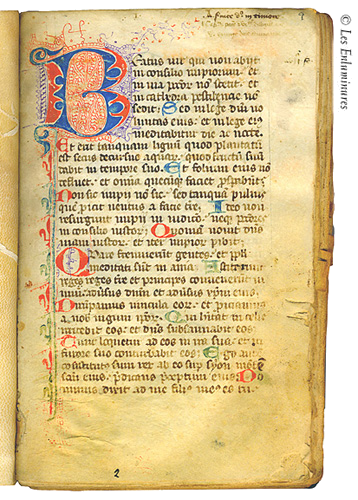 Beatus vir qui non abiit
in consilio impiorum et
in via pecca no stetit et
in cathedra pestilencie no
sedit Sed in lege dni vo
luntas eius et in lege eius
meditabitur die ac nocte
Et erit tanquam lignu quod plantatu
est secus decursus aquar quod fructu suu
dabit in tempore suo Et folium eius no
defluet et omnia quecuq faciet prosperabut
Non sic impii no sic sed tanqua pulvis
que proicit ventus a facie tre Ideo non
resurgunt impii in iudicio neq pctores
in consilio iustor Quoniam novit dns
viam iustor et iter impior peribit
Quare fremuerunt gentes et ppli
meditati sut in ania Astiterut
reges tre et principes convenerut in
unu adversus dnm et adversus xpm eius
Dirupamus vincula eor et proiciamus
a nobis iugum ipor Qui habitat in celis
irridebit eos et dns subsannabit eos
Tunc loquetur ad eos in ira sua et in
furore suo conturbabit eos Ego aut
constitutus sum rex ab eo sup syon mote
sctm eius predicans preceptum eius Do
minus dixit ad me filius meus es tu
2
© Les Enluminures